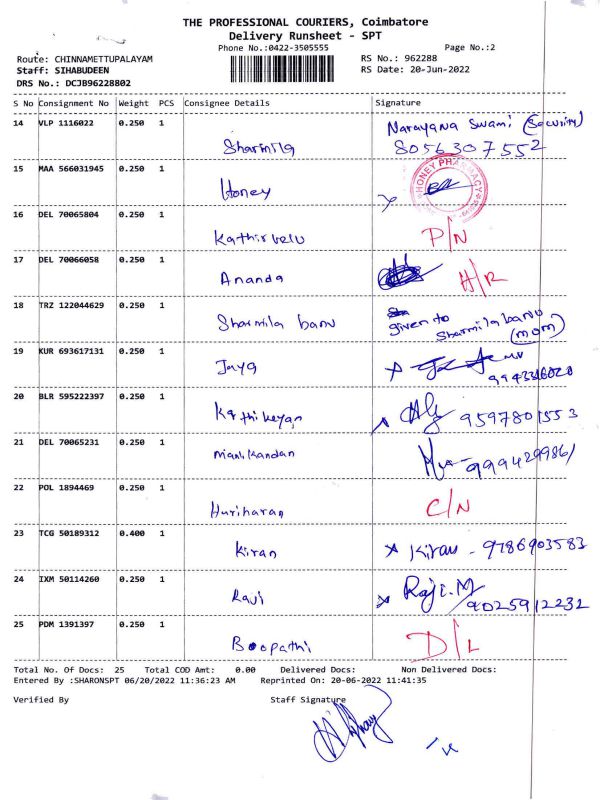 THE PROFESSIONAL COURIERS, Coimbatore
Delivery Runsheet - SPT
Phone No.:0422-3505555 Page No.:2
Route: CHINNAMETTUPALAYAM RS No.: 962288
Staff: SIHABUDEEN RS Date: 20-Jun-2022
DRS No.: DCJB96228802
S No Consignment No Weight PCS Consignee Details Signature
14 VLP 1116022 0.250 1 Sharmila Narayana Swami (Security)
8056307552
15 MAA 566031945 0.250 1 Honey HONEY PHARMACY
16 DEL 70065804 0.250 1 Kathirvelu P/N
17 DEL 70066058 0.250 1 Ananda H/R
18 TRZ 122044629 0.250 1 Sharmila banu given to
Sharmila banu
(mom)
19 KUR 693617131 0.250 1 Jaya
20 BLR 595222397 0.250 1 Kathikeyan 9597801553
21 DEL 70065231 0.250 1 Manikandan 9994299861
22 POL 1894469 0.250 1 Hariharan C/N
23 TCG 50189312 0.400 1 Kiran Kiran - 9786903583
24 IXM 50114260 0.250 1 Ravi Raji.M
9025912232
25 PDM 1391397 0.250 1 Boopathi D/L
Total No. Of Docs: 25 Total COD Amt: 0.00 Delivered Docs: Non Delivered Docs:
Entered By :SHARONSPT 06/20/2022 11:36:23 AM Reprinted On: 20-06-2022 11:41:35
Verified By Staff Signature